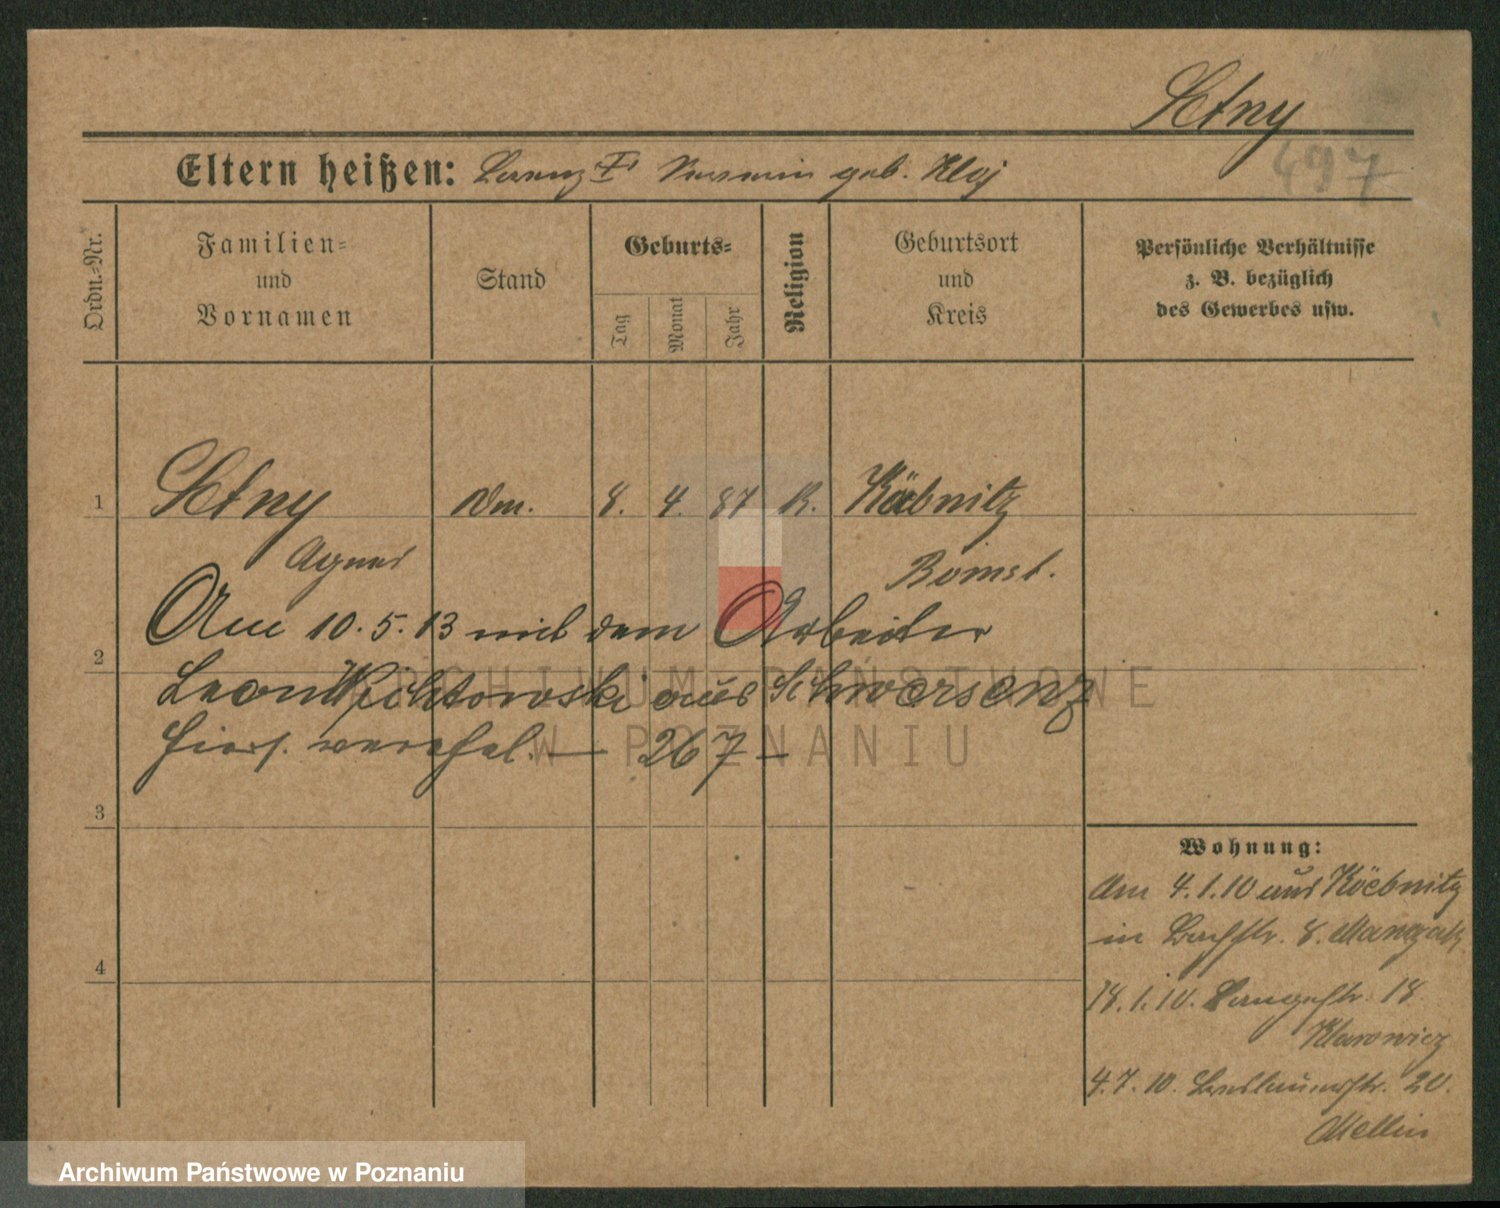 Setny
497
Eltern heißen: Lorenz † geb. Kloj
Ordn.-Nr.
Familien-
und
Vornamen
Stand
Geburts-
Tag
Monat
Jahr
Religion
Geburtsort
und
Kreis
Persönliche Verhältnisse
z. B. bezüglich
des Gewerbes usw.
1
Setny
Dm.
8. 4. 87
R.
Köebnitz
Agnes
Bomst.
Am 10. 5. 13 mit dem Arbeiter
2
Leon aus Schwersenz
hiers. verehel. — 267 —
ARCHIWUM PAŃSTWOWE
W POZNANIU
3
4
Wohnung:
Am 4.1.10 aus Köebnitz
in Bachstr. 8.
18.1.10. Langestr. 18
4.7.10. 20.
Mellin
Archiwum Państwowe w Poznaniu